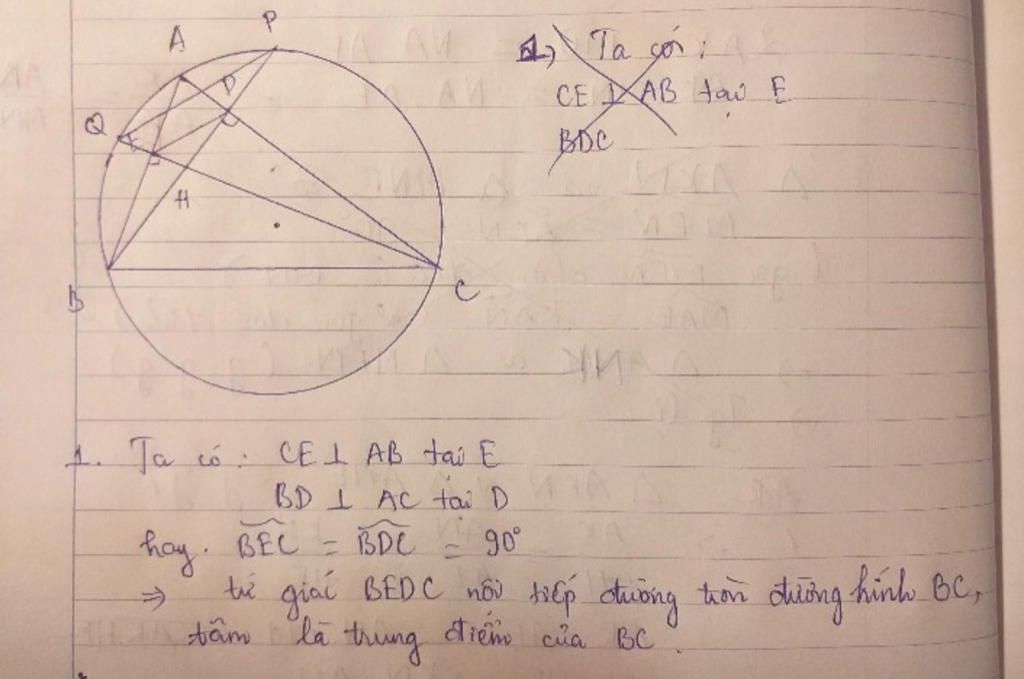 A
P
D
Q
E
H
B
C
1) Ta có:
CE ⊥ AB tại E
BDC
1. Ta có: CE ⊥ AB tại E
BD ⊥ AC tại D
hay. BEC = BDC = 90°
⇒ tứ giác BEDC nội tiếp đường tròn đường kính BC,
tâm là trung điểm của BC.